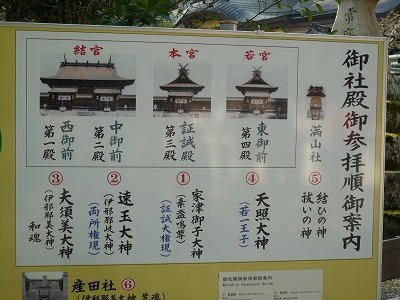 御社殿御参拝順御案内
満山社
⑤
結ひの神
祓いの神
若宮
東御前
第四殿
④
天照大神
(若一王子)
本宮
証誠殿
第三殿
①
家津御子大神
(素盞嗚尊)
(証誠大権現)
結宮
中御前
第二殿
②
速玉大神
(伊邪那岐大神)
(両所権現)
西御前
第一殿
③
夫須美大神
(伊邪那美大神)
和魂
産田社 ⑥
(伊邪那美大神 荒魂)
御社殿御参拝順御案内
Worship Sequence Guide